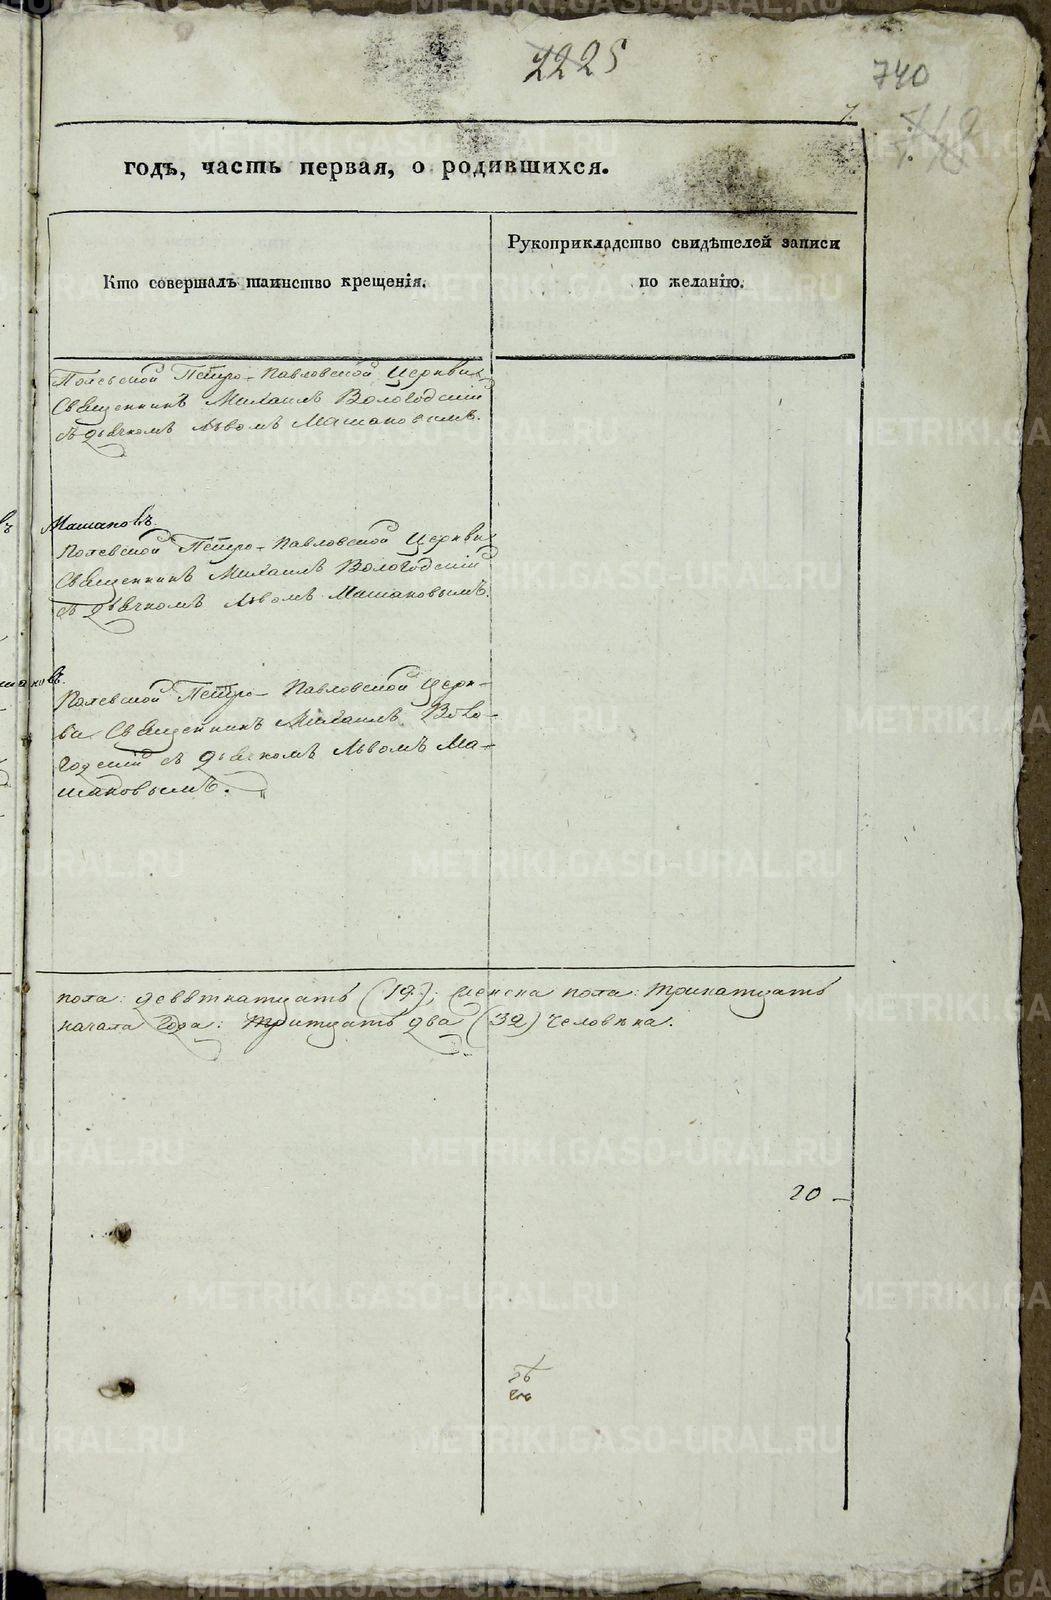 2225
740
7.
годъ, часть первая, о родившихся.
Кто совершалъ таинство крещенія.
Рукоприкладство свидѣтелей записи
по желанію.
Полевской Петро-Павловской Церкви
Священникъ Михаилъ Вологодскій
съ дьячкомъ Львомъ Машановымъ.
Машановъ.
Полевской Петро-Павловской Церкви
Священникъ Михаилъ Вологодскій
съ дьячкомъ Львомъ Машановымъ.
Полевской Петро-Павловской Церк-
ви Священникъ Михаилъ Воло-
годскій съ дьячкомъ Львомъ Ма-
шановымъ.
пола: девятнатцать (19); женска пола: тринатцать
начала года: тритцать два (32) человѣка.
20 –
METRIKI.GASO-URAL.RU